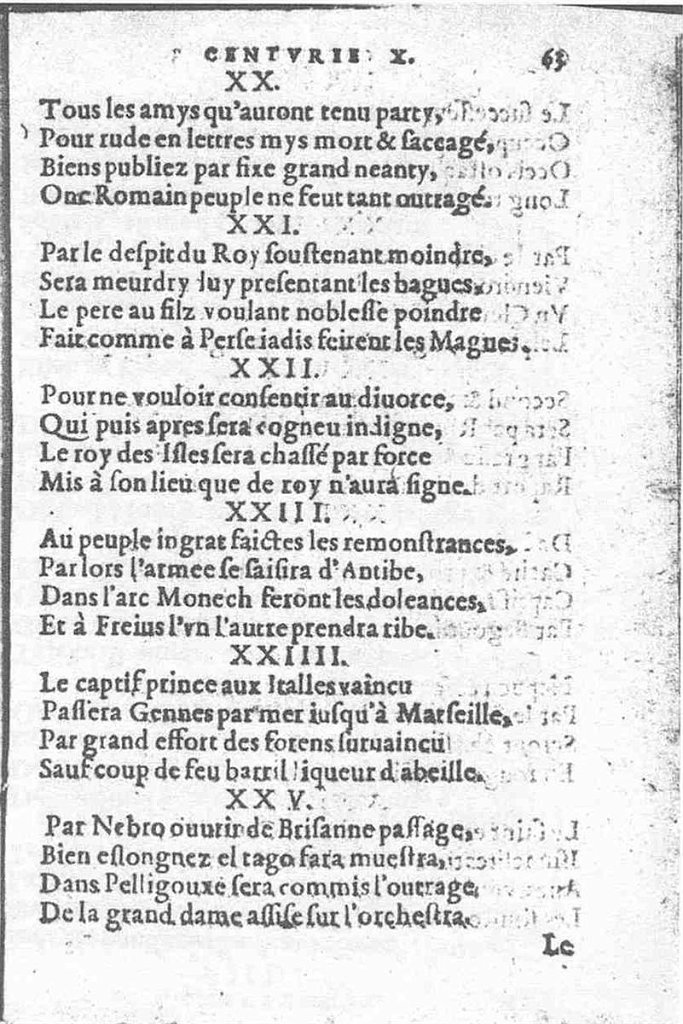 CENTVRIE X. 63
XX.
Tous les amys qu'auront tenu party,
Pour rude en lettres mys mort & saccagé,
Biens publiez par fixe grand neanty,
Onc Romain peuple ne feut tant outragé.
XXI.
Par le despit du Roy soustenant moindre,
Sera meurdry luy presentant les bagues,
Le pere au filz voulant noblesse poindre
Fait comme à Perse iadis feirent les Magues.
XXII.
Pour ne vouloir consentir au diuorce,
Qui puis apres sera cogneu indigne,
Le roy des Isles sera chassé par force
Mis à son lieu que de roy n'aura signe.
XXIII.
Au peuple ingrat faictes les remonstrances,
Par lors l'armee se saisira d'Antibe,
Dans l'arc Monech feront les doleances,
Et à Freius l'vn l'autre prendra ribe.
XXIIII.
Le captif prince aux Italles vaincu
Passera Gennes par mer iusqu'à Marseille,
Par grand effort des forens suruaincu
Sauf coup de feu barril liqueur d'abeille.
XXV.
Par Nebro ouurir de Brisanne passage,
Bien eslongnez el tago fara muestra,
Dans Pelligouxe sera commis l'outrage,
De la grand dame assise sur l'orchestra.
Le